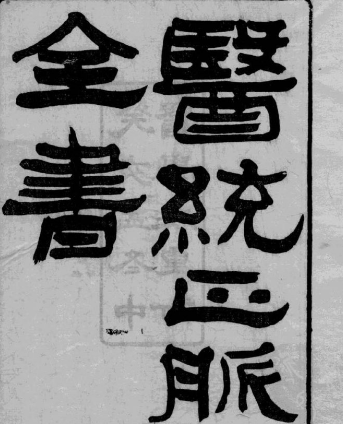 醫統正脈
全書